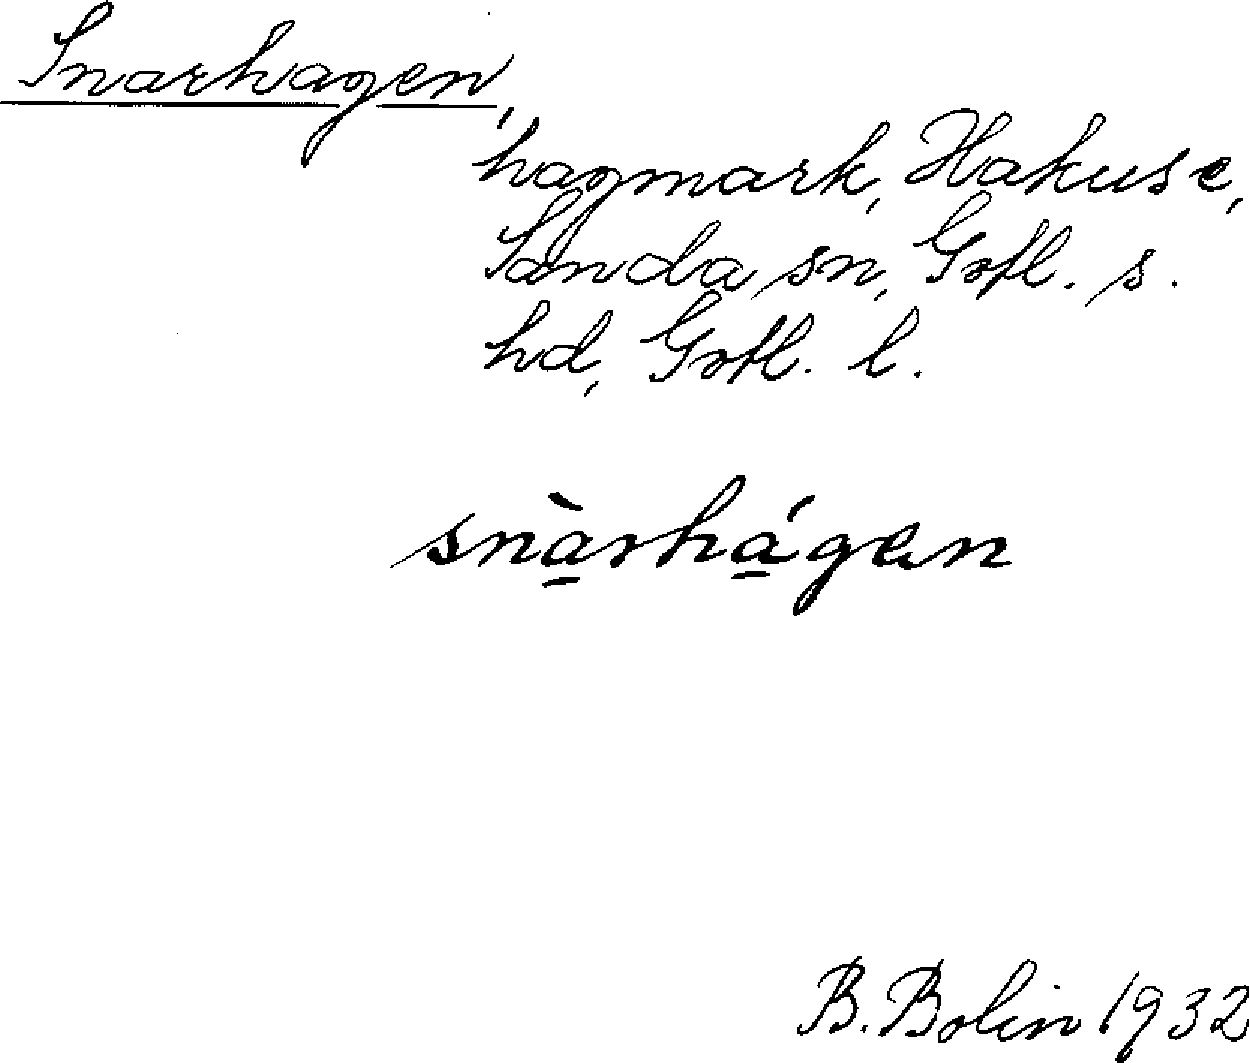 Snarhagen,
hagmark, Hakuse,
Sanda sn, Gotl. s.
hd, Gotl. l.
snà̱rhá̱gen
B. Bolin 1932